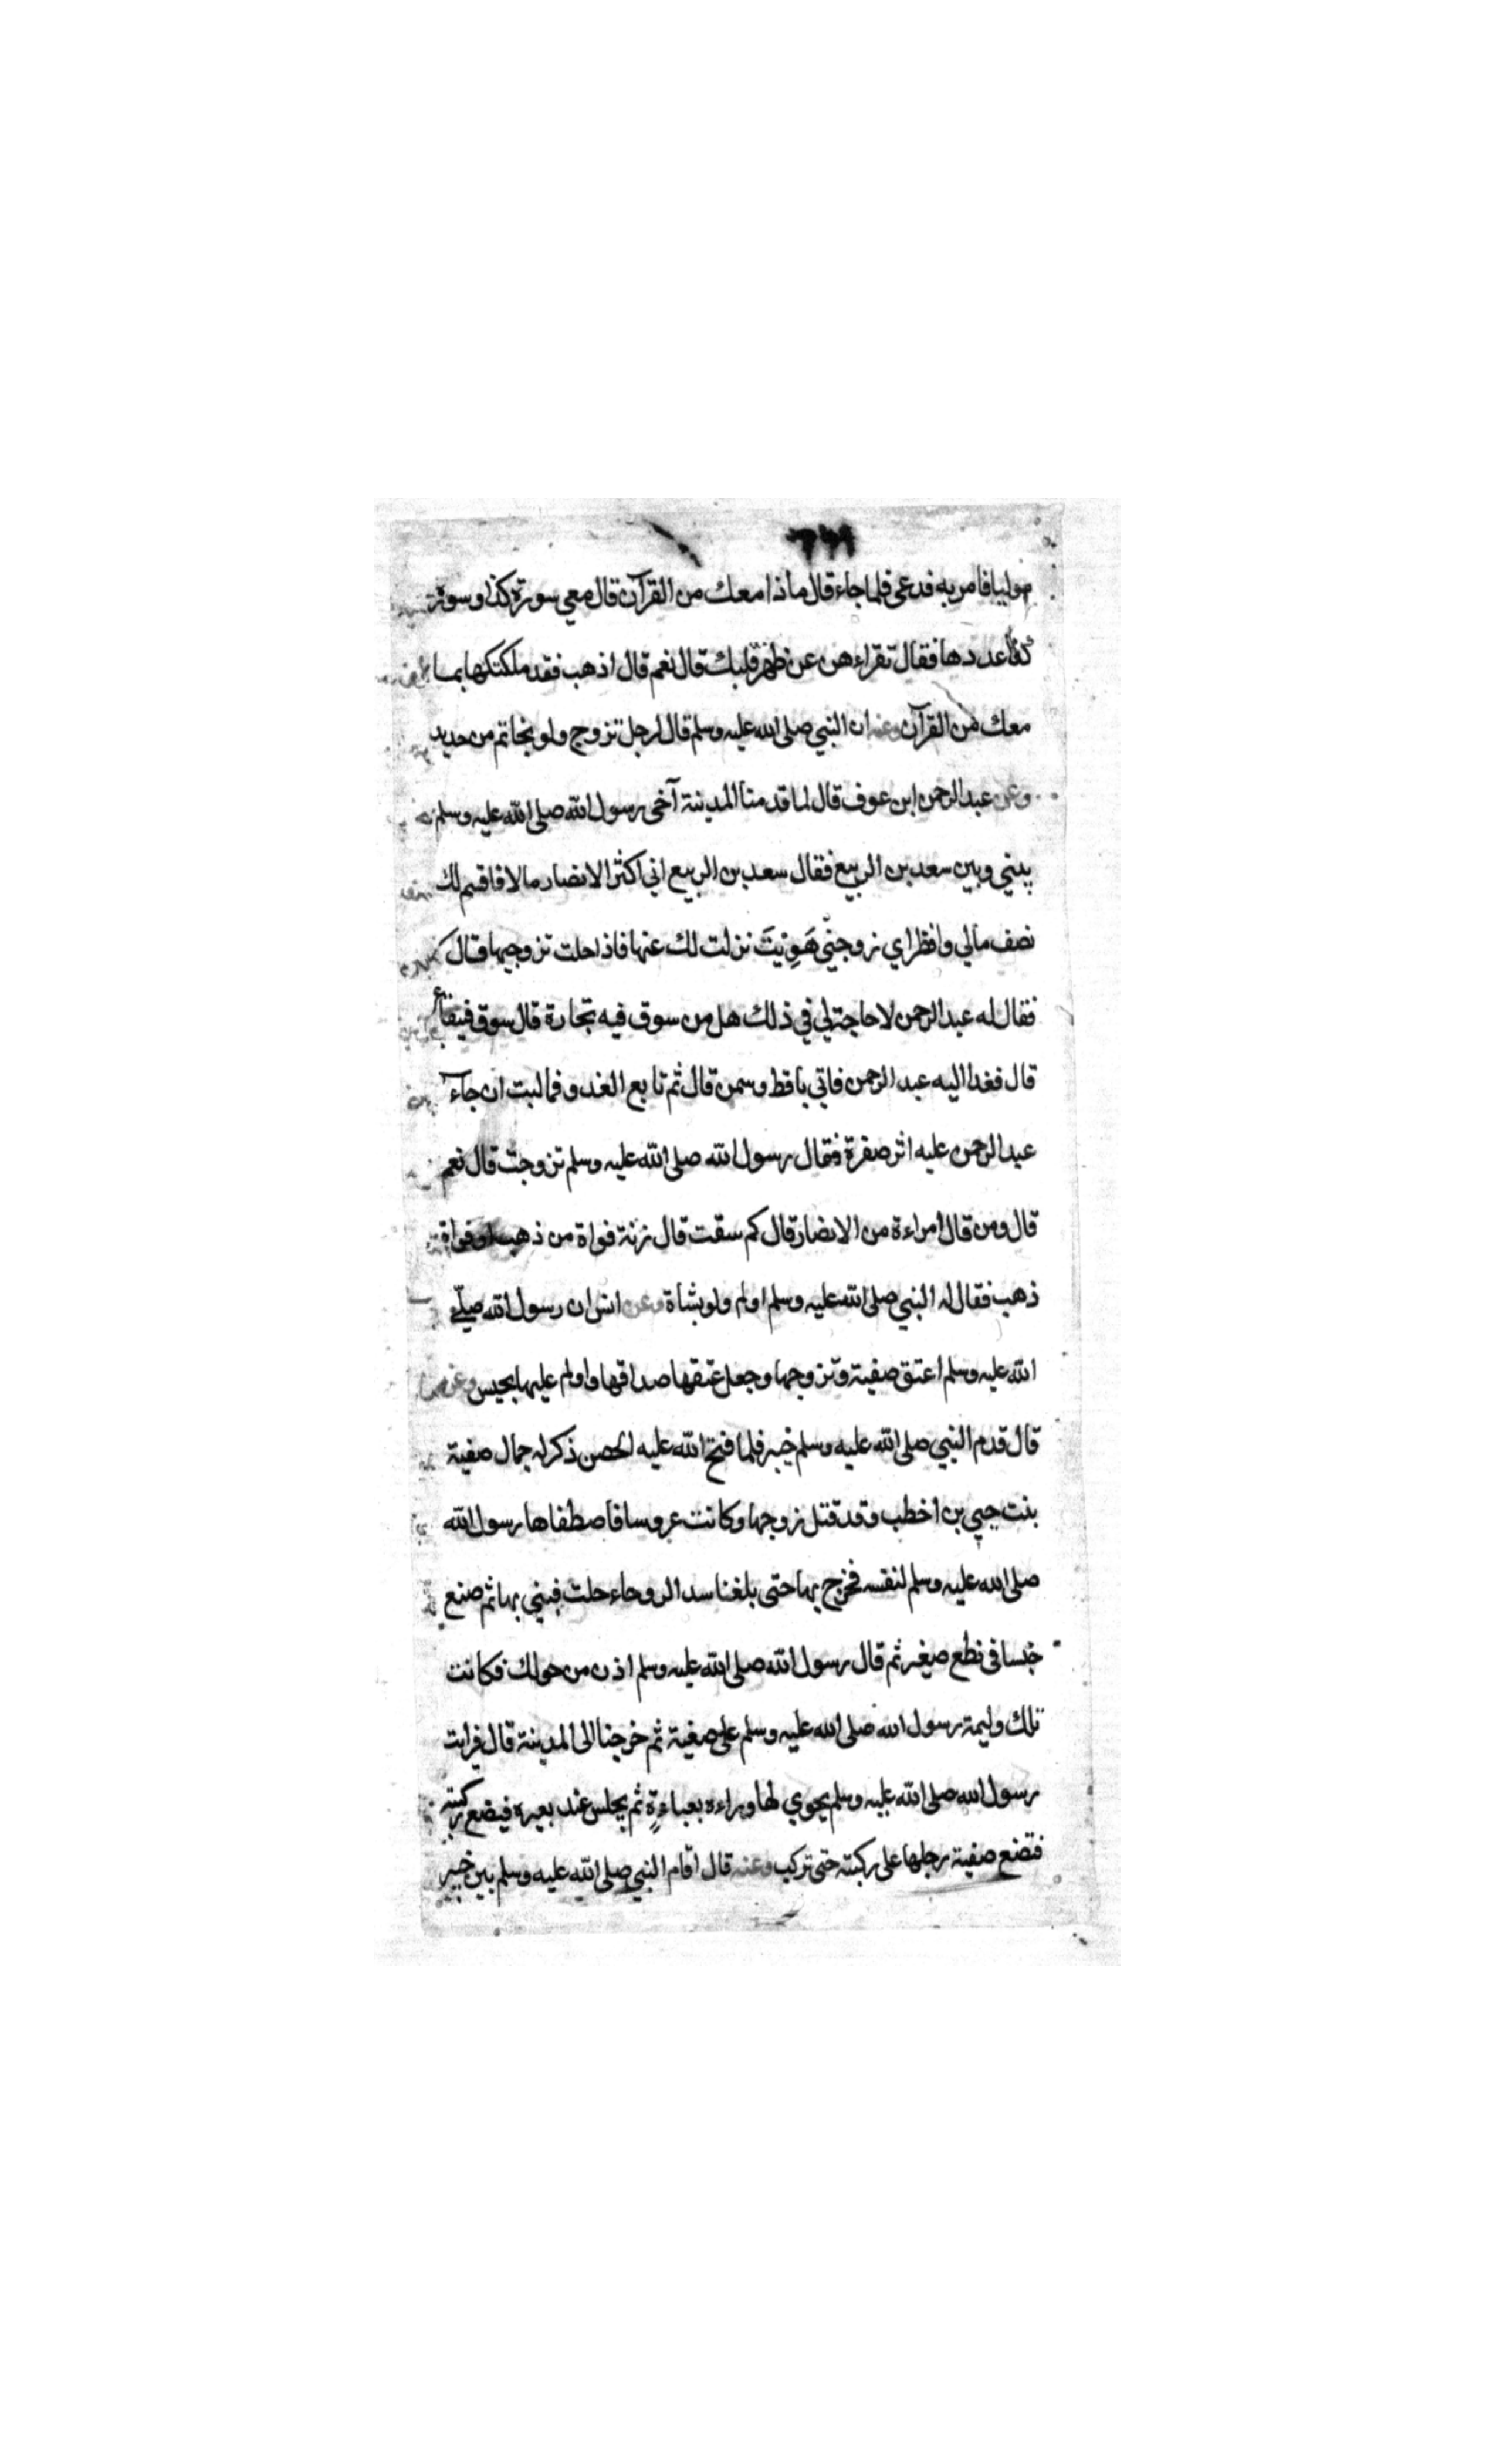 موليا فامر به فدعى فلما جاء قال ماذا معك من القرآن قال معي سورة كذا وسورة
كذا عددها فقال تقراءهن عن ظهر قلبك قال نعم قال اذهب فقد ملكتكها بما
معك من القرآن وعنه ان النبي صلى الله عليه وسلم قال لرجل تزوج ولو بخاتم من حديد
وعن عبد الرحمن ابن عوف قال لما قدمنا المدينة آخى رسول الله صلى الله عليه وسلم
بيني وبين سعد بن الربيع فقال سعد بن الربيع اني اكثر الانصار مالا فاقسم لك
نصف مالي وانظر اي زوجتي هَوِيْتَ نزلت لك عنها فاذا حلت تزوجيها قال
فقال له عبد الرحمن لا حاجة لي في ذلك هل من سوق فيه تجارة قال سوق قينقاع
قال فغدا اليه عبد الرحمن فاتي باقط وسمن قال ثم تابع الغدو فما لبث ان جآء
عبد الرحمن عليه اثر صفرة فقال رسول الله صلى الله عليه وسلم تزوجت قال نعم
قال ومن قال امراءة من الانصار قال كم سقت قال زنة نواة من ذهب او نواة
ذهب فقال له النبي صلى الله عليه وسلم اولم ولو بشاة وعن انس ان رسول الله صلى
الله عليه وسلم اعتق صفية وتزوجها وجعل عتقها صداقها واولم عليها بحيس
قال قدم النبي صلى الله عليه وسلم خيبر فلما فتح الله عليه الحصن ذكر له جمال صفية
بنت حيي بن اخطب وقد قتل زوجها وكانت عروسا فاصطفاها رسول الله
صلى الله عليه وسلم لنفسه فخرج بها حتى بلغنا سد الروحاء حلت فبني بها ثم صنع
حيسا في نطع صغير ثم قال رسول الله صلى الله عليه وسلم اذن من حولك فكانت
تلك وليمة رسول الله صلى الله عليه وسلم على صفية ثم خرجنا الى المدينة قال فرايت
رسول الله صلى الله عليه وسلم يحوي لها وراءه بعباءةٍ ثم يجلس عند بعيره فيضع ركبته
فتضع صفية رجلها على ركبته حتى تركب وعنه قال اقام النبي صلى الله عليه وسلم بين خيبر